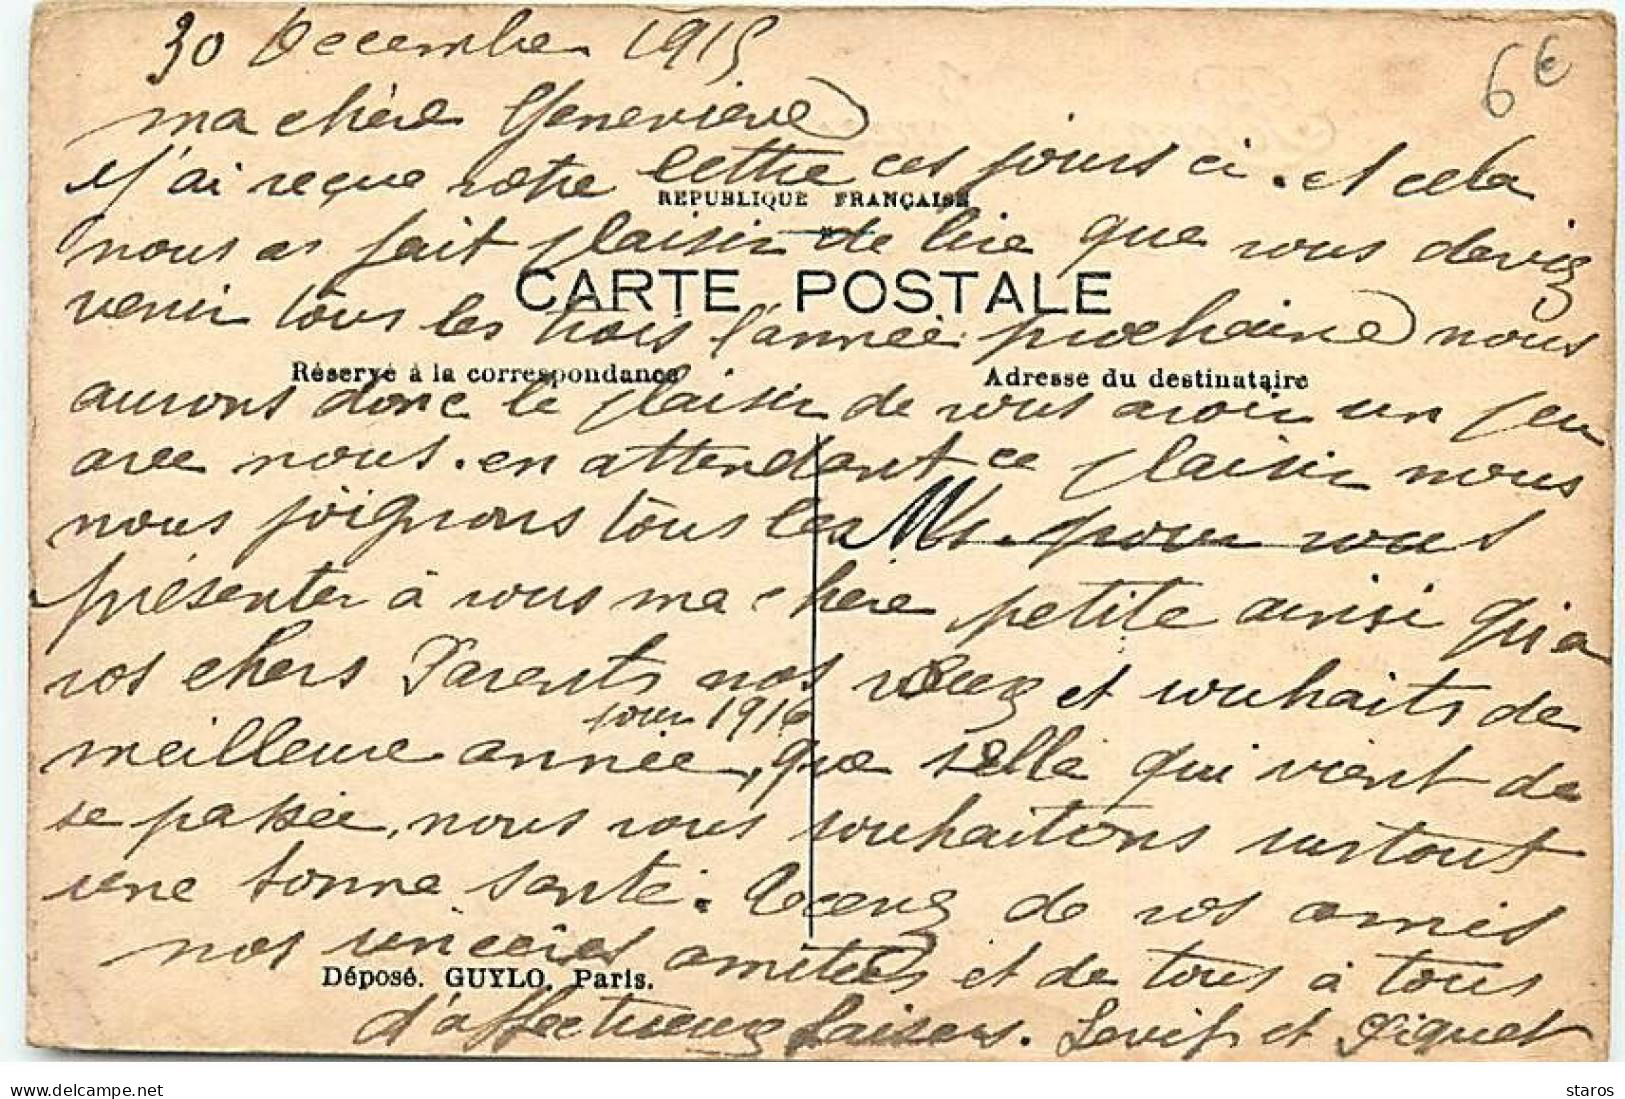 30 Decembre 1915
6€
ma chère Geneviève
J'ai reçue votre lettre ces jours ci. et cela
REPUBLIQUE FRANÇAISE
nous as fait plaisir de lire que vous deviez
CARTE POSTALE
venir tous les trois l'année prochaine nous
Réservé à la correspondance
Adresse du destinataire
aurons donc le plaisir de vous avoir un peu
avec nous. en attendant ce plaisir nous
nous joignons tous les pour vous
présenter à vous ma chère petite ainsi qu'a
vos chers Parents nos vœux et souhaits de
pour 1916
meilleure année, que selle qui vient de
se passée, nous vous souhaitons surtout
une bonne santé. de vos amis
nos sincères amitiées et de tous à tous
Déposé. GUYLO. Paris.
d'affectueux baisers. et Piquet
delcampe.net
staros